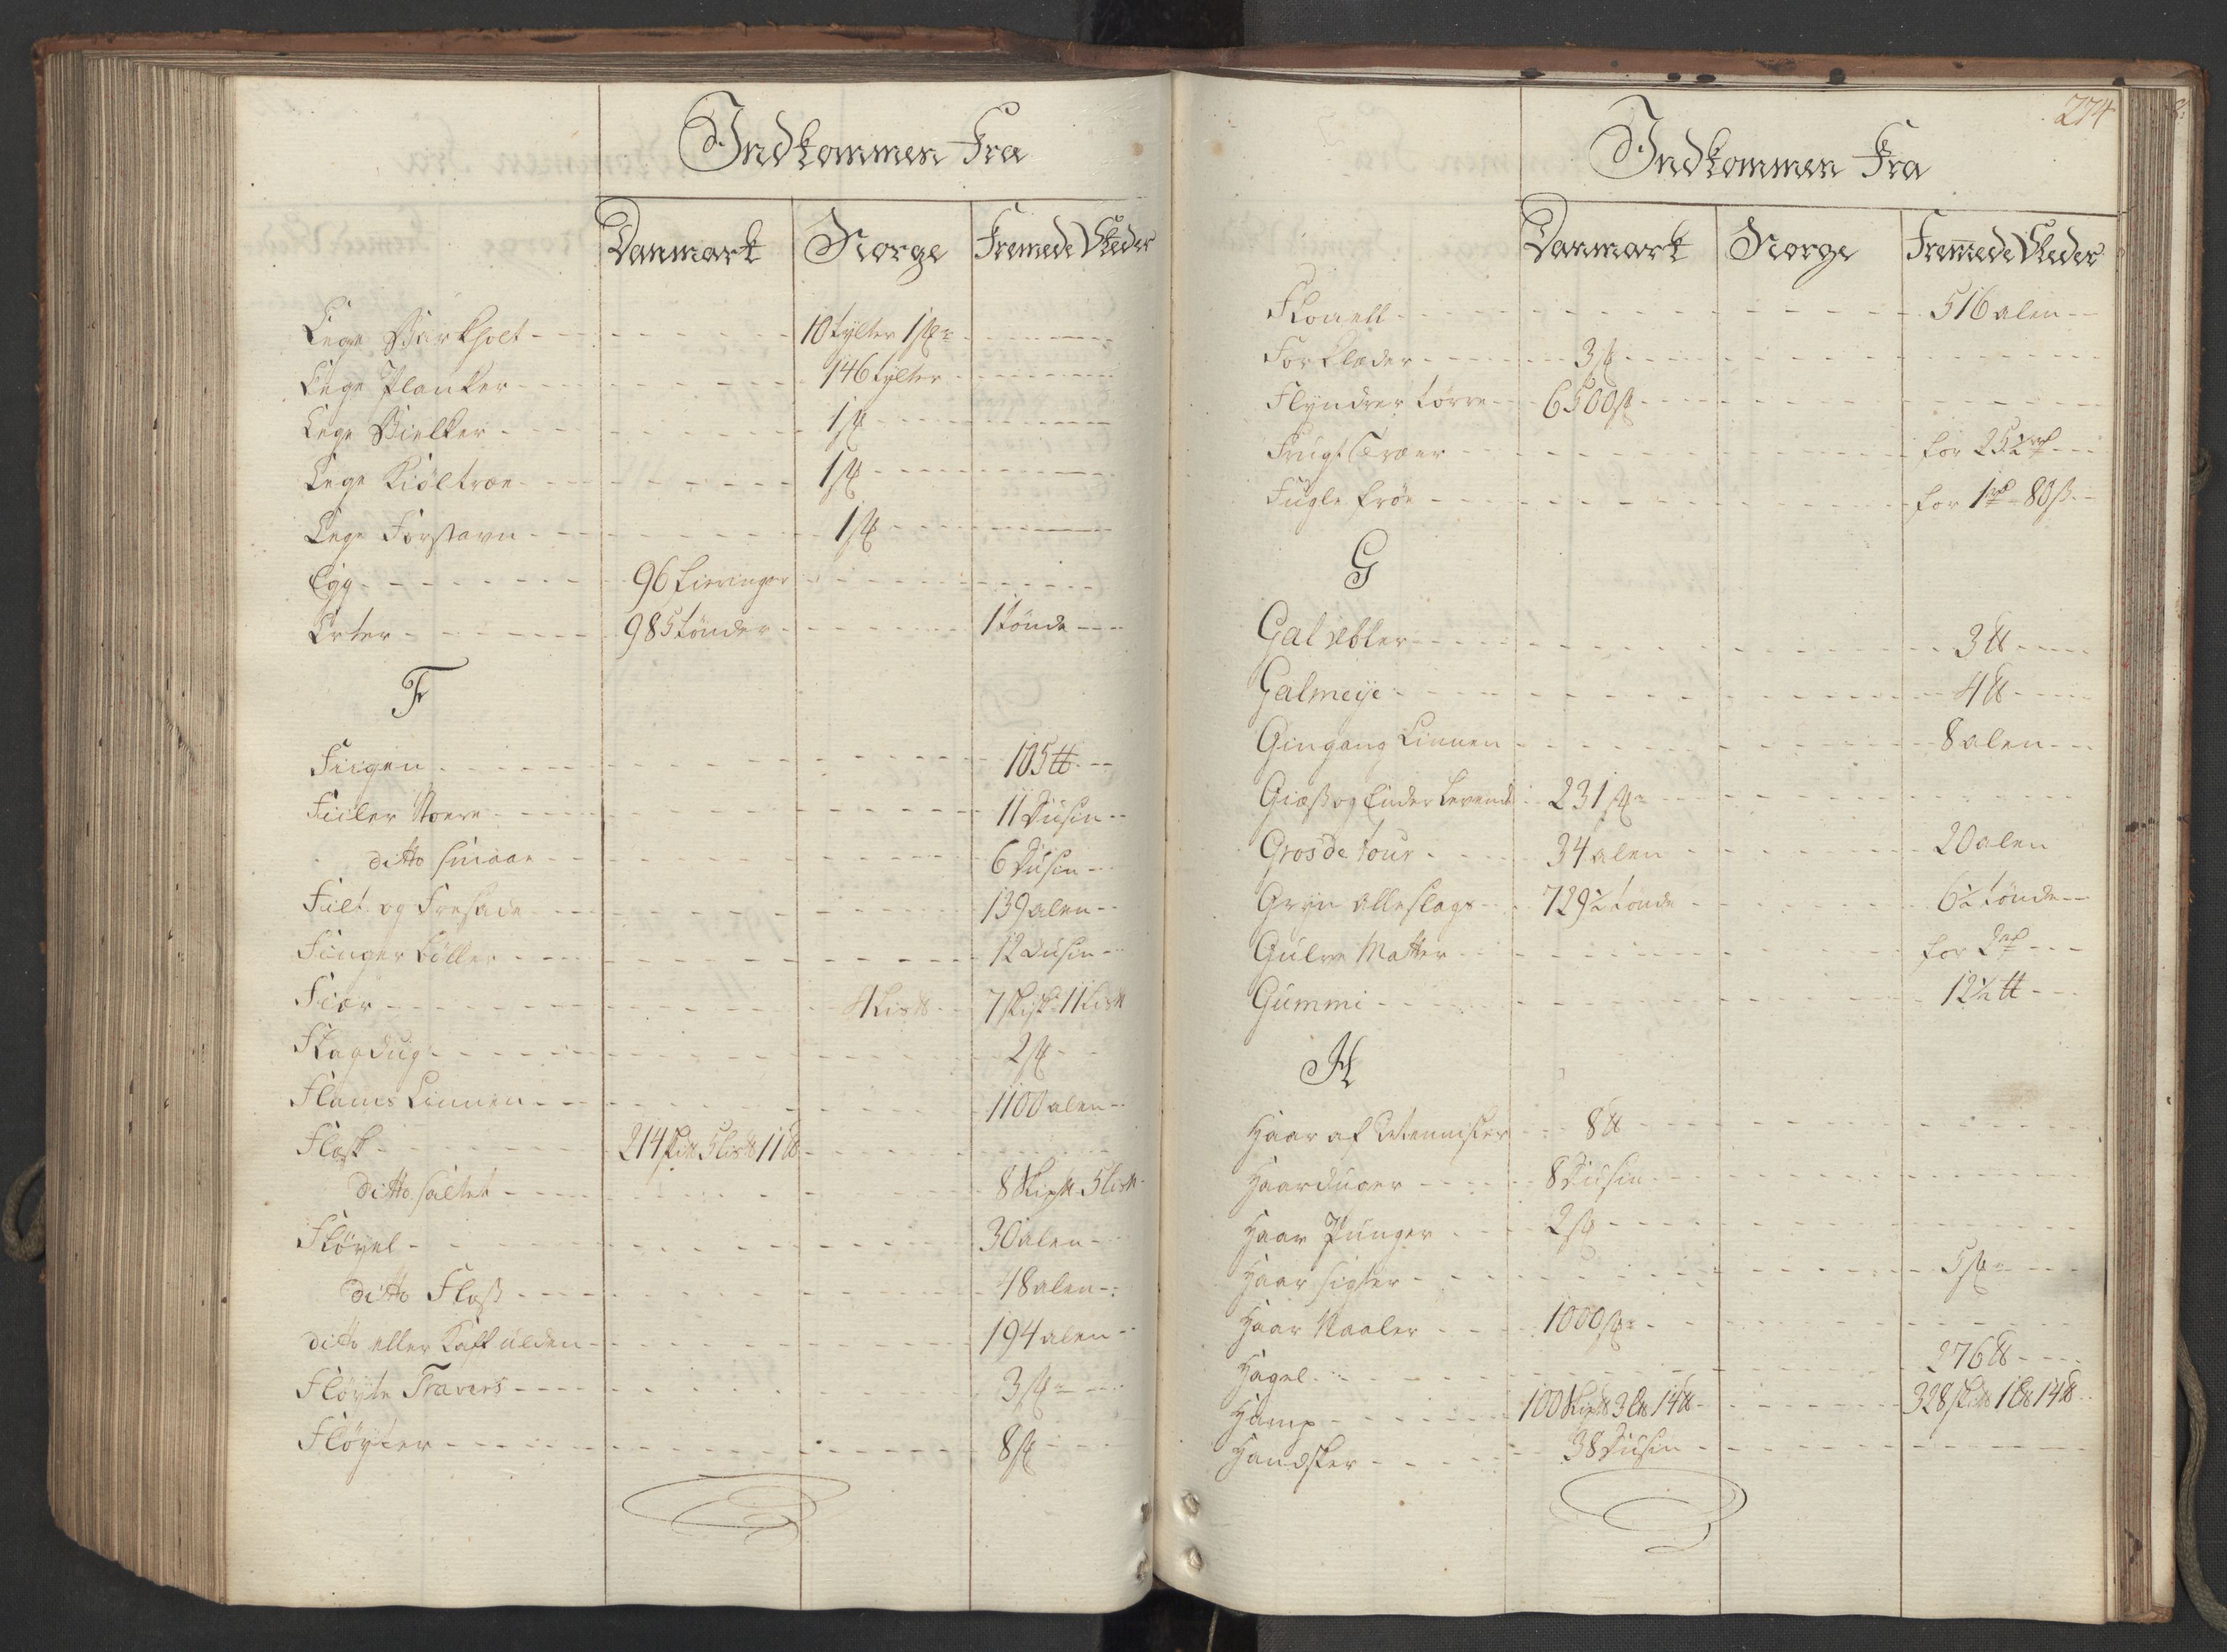 Indkommen Fra
Danmark Norge Fremede Steder
Eege Barkholt - - 10 tylter 1 st:
Eege Planker - - 146 tylter
Eege Bielker - - 1 st
Eege Kiöltræe - - 1 st
Eege Forstavn - - 1 st
Egg - - 96 Snese
Erter - - 985 tönder - - 1 tönde
F
Fiigen - - 105 ℔
Fiiler Store - - 11 Dusin
ditto smaae - - 6 Dusin
Filt og Fresade - - 139 alen
FingerBöller - - 12 Dusin
Fiær - - 4 Lis℔ - - 7 Skip℔ 11 Lis℔
Flagdug - - 2 st
Flams Linnen - - 1100 alen
Flæsk - - 214 Sk℔ 5 Lis℔ 11 ℔
ditto saltet - - 8 Skip℔ 5 Lis℔
Flöyel - - 30 alen
ditto Flos - - 48 alen
ditto eller Kaff ulden - - 194 alen
Flöyte Travers - - 3 st:
Flöyter - - 8 st
274
Indkommen Fra
Danmark Norge Fremede Steder
Flonell - - 516 alen
Forklæder - - 3 st
Flyndrer törre - - 6500 st
Frugt Træer - - for 252 rd
Fugle fröe - - for 1 rd 80 ß
G
Gal æbler - - 3 ℔
Galmeije - - 4 ℔
Gingang Linnen - - 8 alen
Giæs og Ender levende - - 231 st:
Gros de tour - - 34 alen - - 20 alen
Gryn alleslags - - 729½ tönde - - 6½ tönde
Gulve Matter - - for 2 rd
Gummi - - 12½ ℔
H
Haar af Mennisker - - 8 ℔
Haarduger - - 8 Dusin
Haar Punger - - 2 st
Haar sigter - - 5 st:
Haar Naaler - - 1000 st:
Hagel - - 276 ℔
Hamp - - 100 Skip℔ 3 L℔ 14 ℔ - - 328 Skip℔ 1 L℔ 14 ℔
Handsker - - 38 Dusin